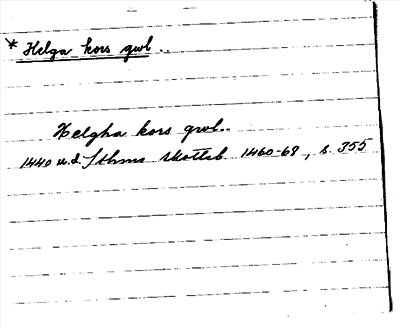 * Helga kors gwl..
Helgha kors gwl..
1440 u.d. Sthms skottsb. 1460-68, s. 355